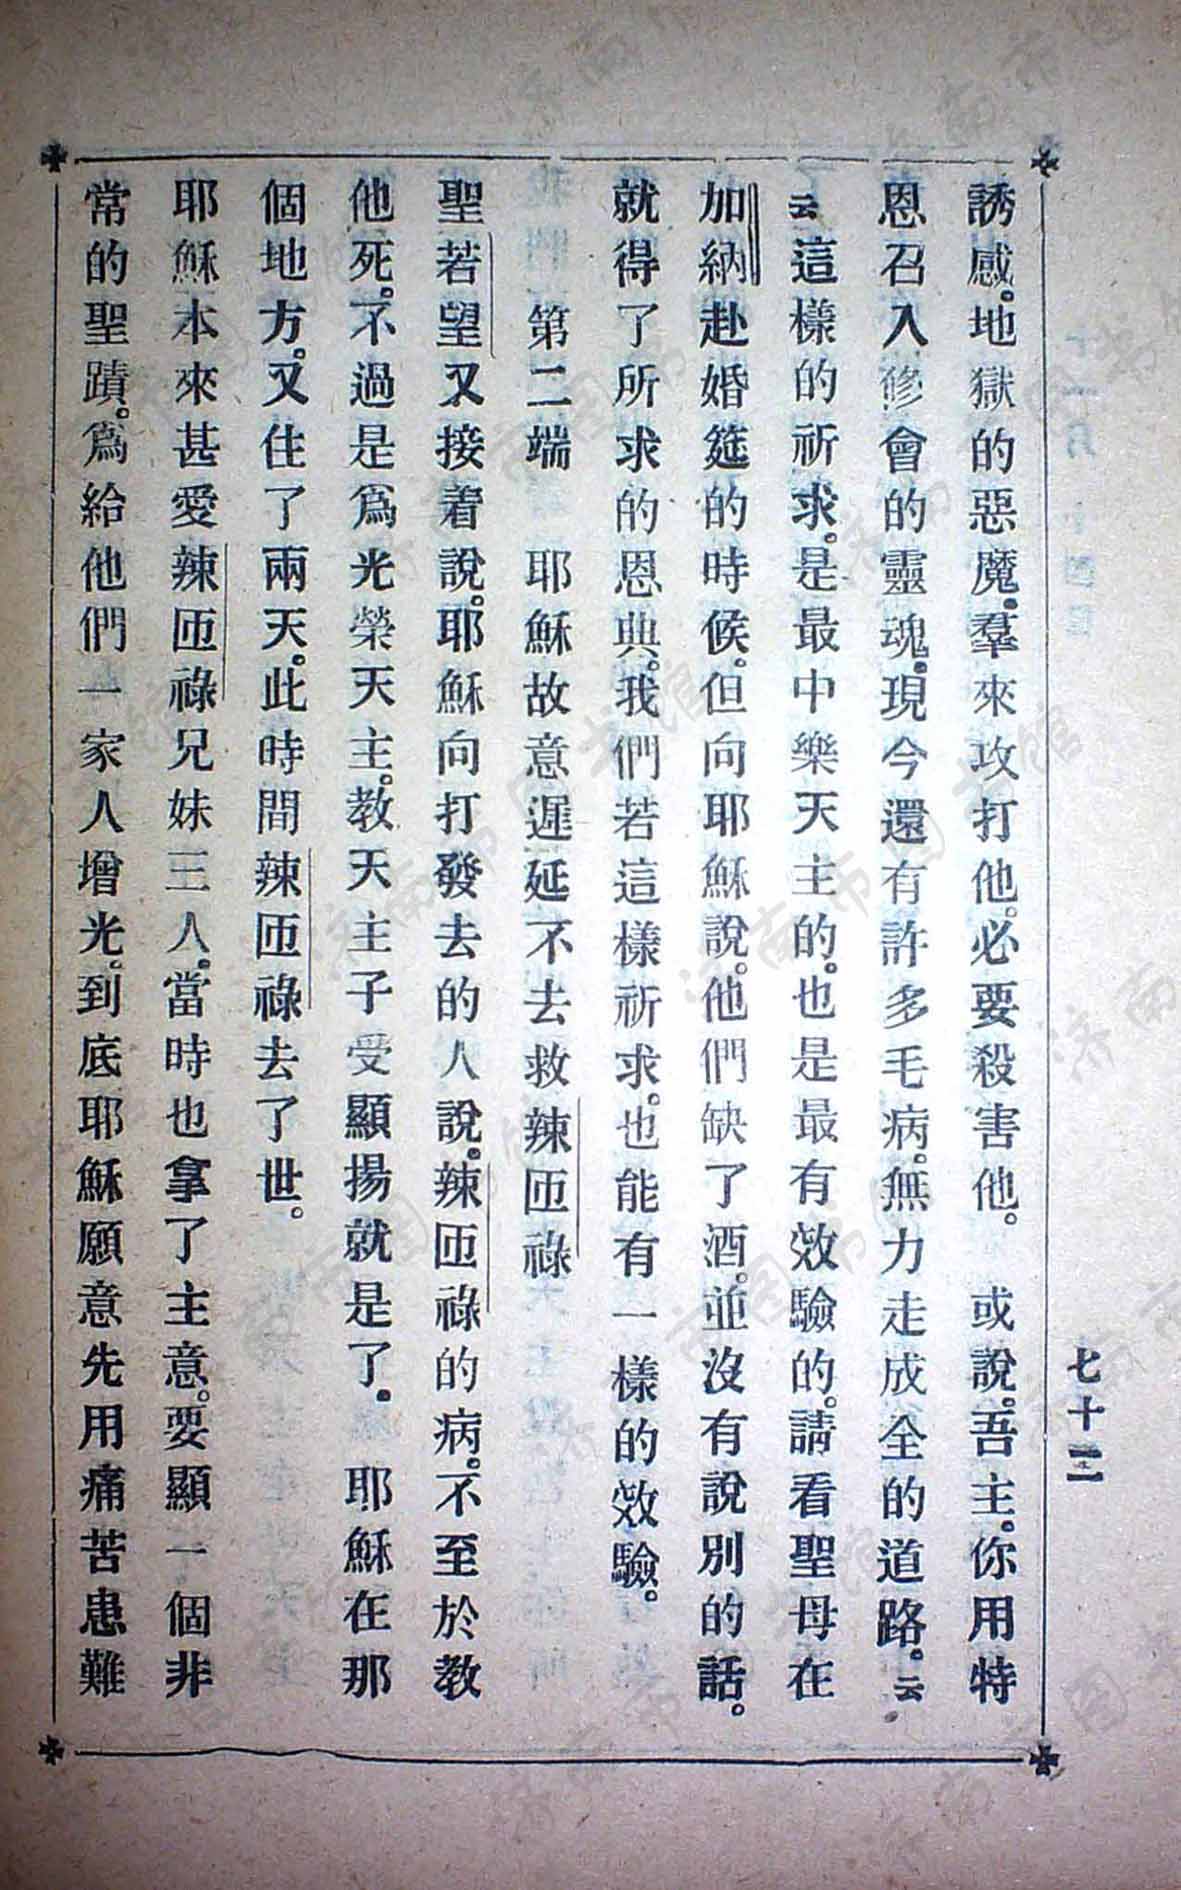 七十二
誘感。地獄的惡魔。羣來攻打他。必要殺害他。　或說。吾主。你用特
恩召入修會的靈魂。現今還有許多毛病。無力走成全的道路。云
云這樣的祈求。是最中樂天主的。也是最有效驗的。請看聖母在
加納赴婚筵的時候。但向耶穌說。他們缺了酒。並沒有說別的話。
就得了所求的恩典。我們若這樣祈求。也能有一樣的效驗。
第二端　耶穌故意遲延不去救辣匝祿
聖若望又接着說。耶穌向打發去的人說。辣匝祿的病。不至於教
他死。不過是爲光榮天主。教天主子受顯揚就是了。　耶穌在那
個地方。又住了兩天。此時間辣匝祿去了世。
耶穌本來甚愛辣匝祿兄妹三人。當時也拿了主意。要顯一個非
常的聖蹟。爲給他們一家人增光。到底耶穌願意先用痛苦患難